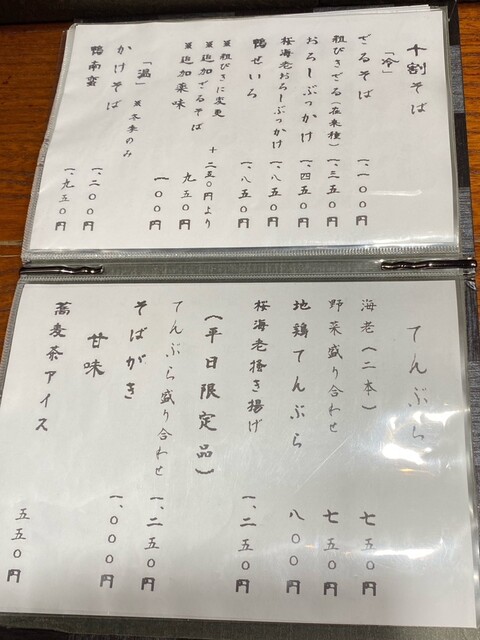 十割そば
「冷」
ざるそば 一、一〇〇円
粗びきざる(在来種) 一、三五〇円
おろしぶっかけ 一、四五〇円
桜海老おろしぶっかけ 一、八五〇円
鴨せいろ 一、八五〇円
※粗びきに変更 +二五〇円より
※追加ざるそば 九五〇円
※追加薬味 一〇〇円
「温」※冬季のみ
かけそば 一、二〇〇円
鴨南蛮 一、九五〇円
てんぷら
海老(二本) 七五〇円
野菜盛り合わせ 七五〇円
地鶏てんぷら 八〇〇円
桜海老掻き揚げ 一、二五〇円
(平日限定品)
てんぷら盛り合わせ 一、二五〇円
そばがき 一、〇〇〇円
甘味
蕎麦茶アイス 五五〇円